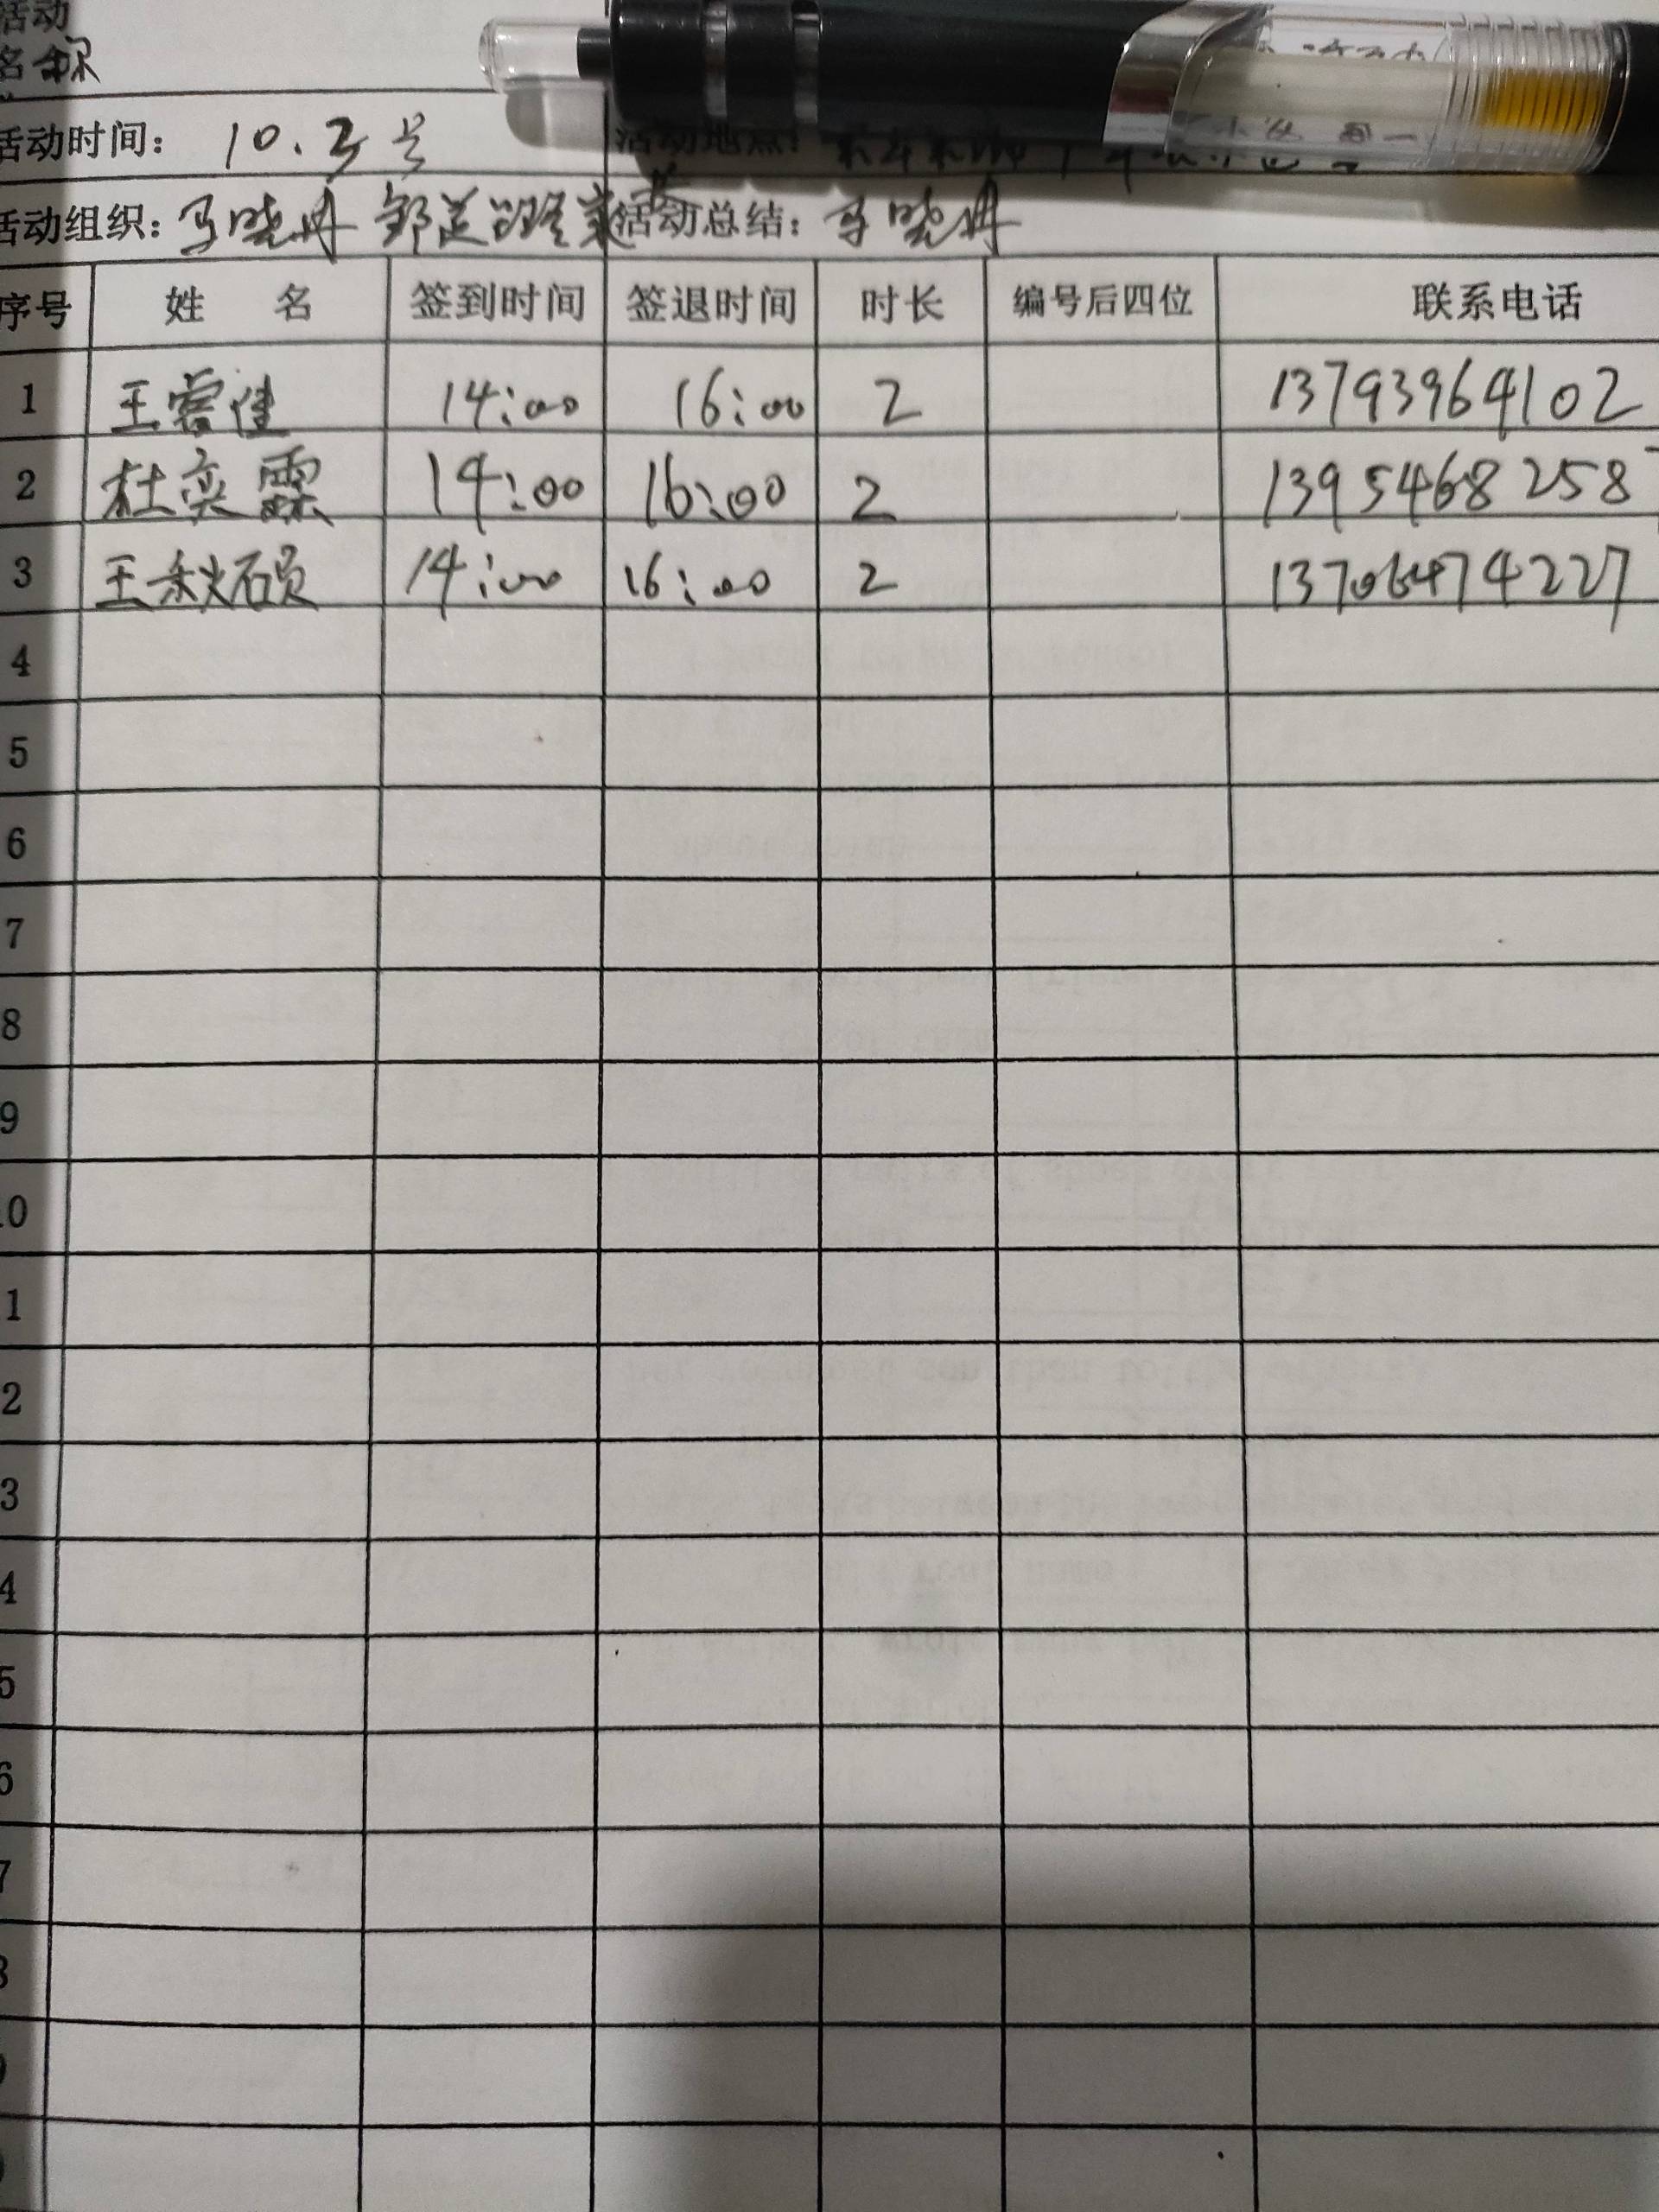 活动
名称
活动时间： 10.3号 活动地点：
活动组织： 马晓丹 活动总结： 马晓丹
序号 姓 名 签到时间 签退时间 时长 编号后四位 联系电话
1 王睿佳 14:00 16:00 2 13793964102
2 杜奕霖 14:00 16:00 2 1395468258
3 王秋硕 14:00 16:00 2 13706474227
4
5
6
7
8
9
10
1
2
3
4
5
6
7
8
9